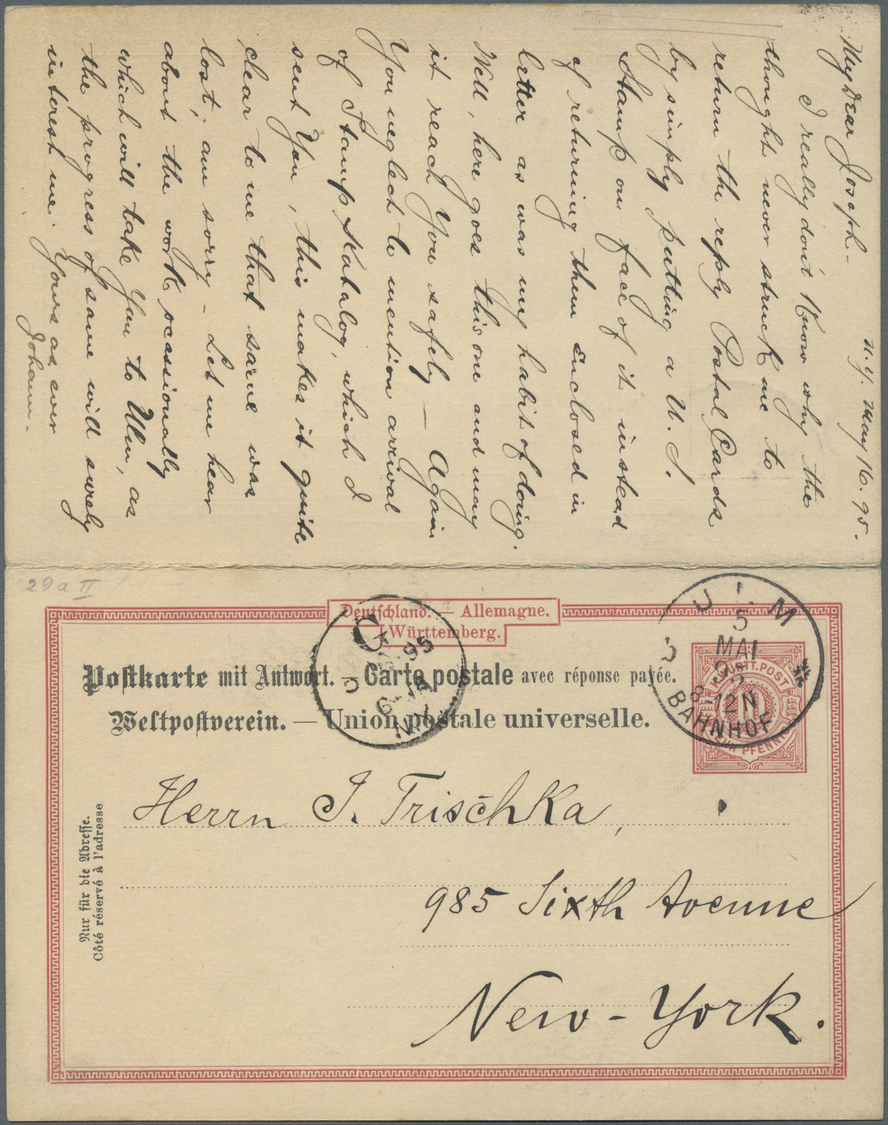 N.Y. May 16. 95.
My dear Joseph –
I really don't Know why the
thought never struck me to
return the reply Postal Cards
by simply putting a U.S.
Stamp on face of it instead
of returning them enclosed in
letter as was my habit of doing.
Well, here goes this one and may
it reach You safely – Again
You neglect to mention arrival
of Stamp Katalog, which I
sent You, this makes it quite
clear to me that same was
lost, am sorry – Let me hear
about the work ocassionally
which will take You to Ulm, as
the progress of same will surely
interest me. Yours as ever
Johann.
29a II
Deutschland. — Allemagne.
Württemberg.
Postkarte mit Antwort. — Carte postale avec réponse payée.
Weltpostverein. — Union postale universelle.
ULM
5
MAI
95
8-12N
BAHNHOF
95
N.Y.
WÜRTT. POST
10
ZEHN PFENNIG
Nur für die Adresse.
Côté réservé à l'adresse
Herrn J. Trischka,
985 Sixth Avenue
New-York.